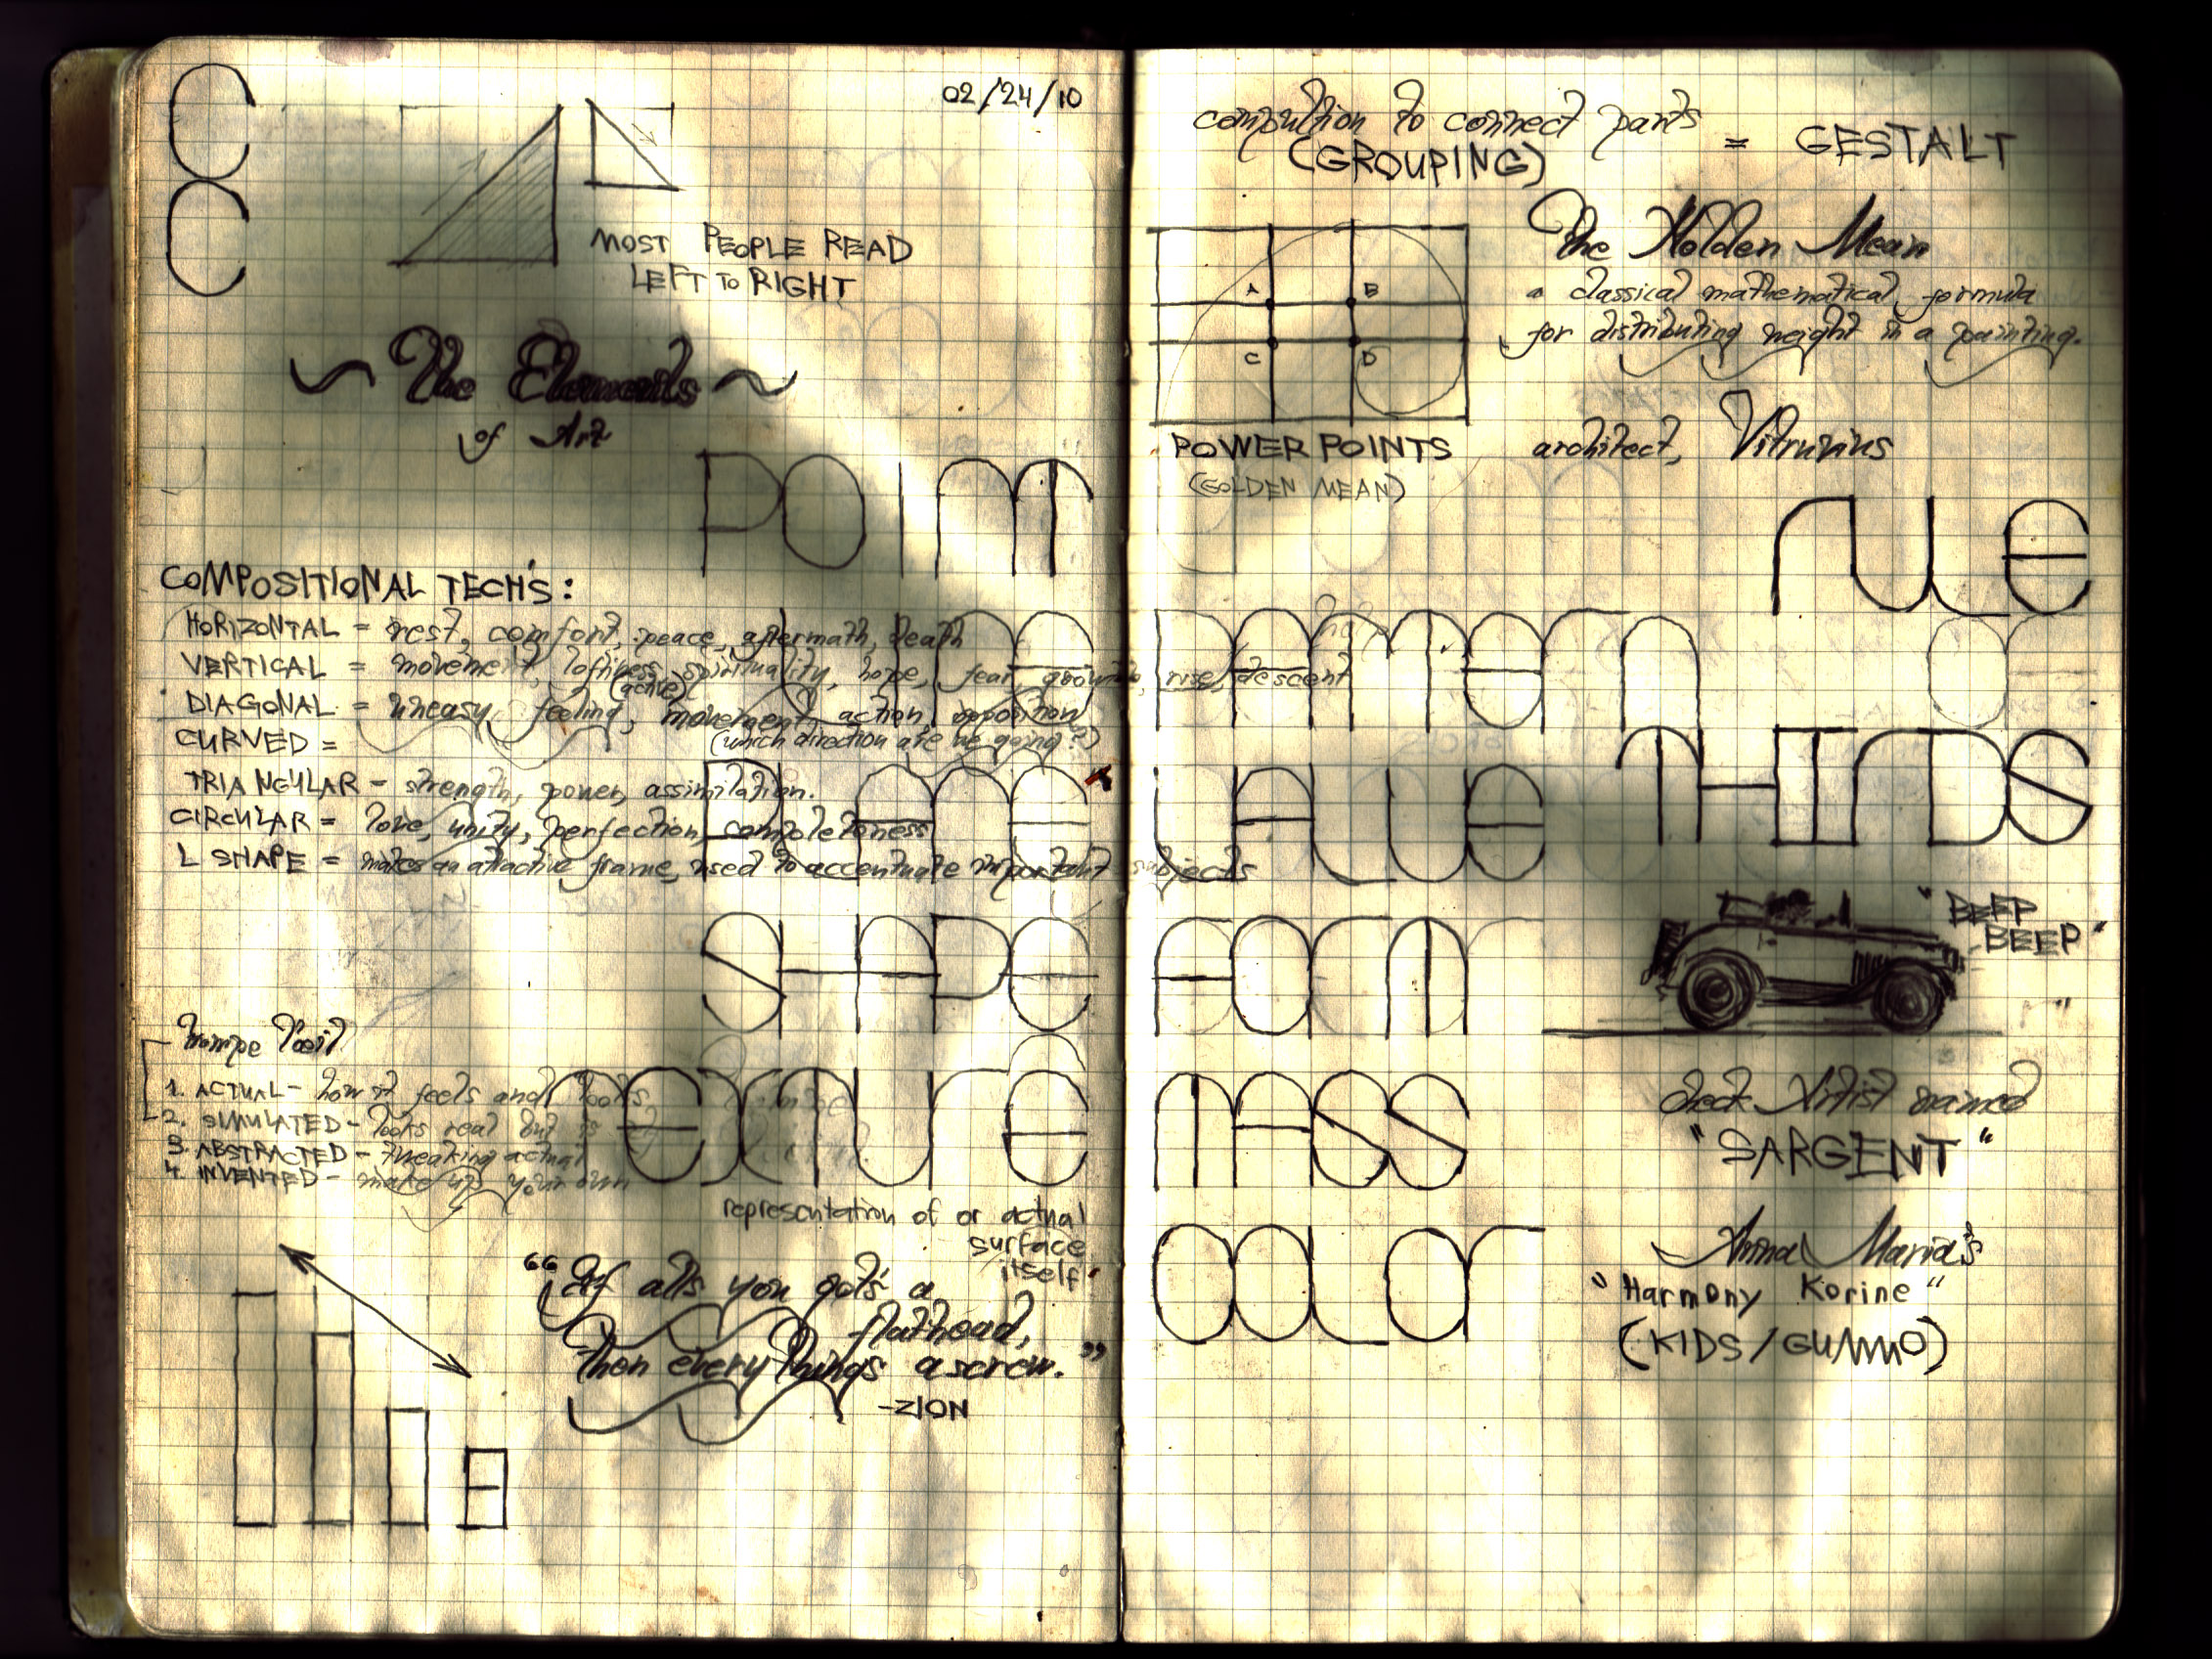 02/24/10
C
C
MOST PEOPLE READ
LEFT TO RIGHT
~ The Elements ~
of Art
POINT
COMPOSITIONAL TECH'S:
HORIZONTAL = rest, comfort, peace, aftermath, death
VERTICAL = movement, loftiness, spirituality, hope, fear, growth, rise, descent
(active)
DIAGONAL = uneasy feeling, movement, action, opposition
(which direction are we going?)
CURVED =
TRIANGULAR - strength, power, assimilation.
CIRCULAR = love, unity, perfection, completeness
L SHAPE = makes an attractive frame, used to accentuate important subjects
SHAPE
trompe l'oeil
1. ACTUAL - how it feels and looks
2. SIMULATED - looks real but is
3. ABSTRACTED - tweaking actual
4. INVENTED - make up your own
texture
representation of or actual
surface
itself.
"If alls you gots a
flathead,
Then every things a screw."
-ZION
compultion to connect parts
(GROUPING)
= GESTALT
The Golden Mean
a classical mathematical formula
for distributing weight in a painting.
A B
C D
POWER POINTS
(GOLDEN MEAN)
architect, Vitruvius
rule
pattern
of
THIRDS
value
"BEEP
BEEP"
FORM
MASS
check Artist named
"SARGENT"
COLOR
Anna Maria's
"Harmony Korine"
(KIDS/GUMMO)